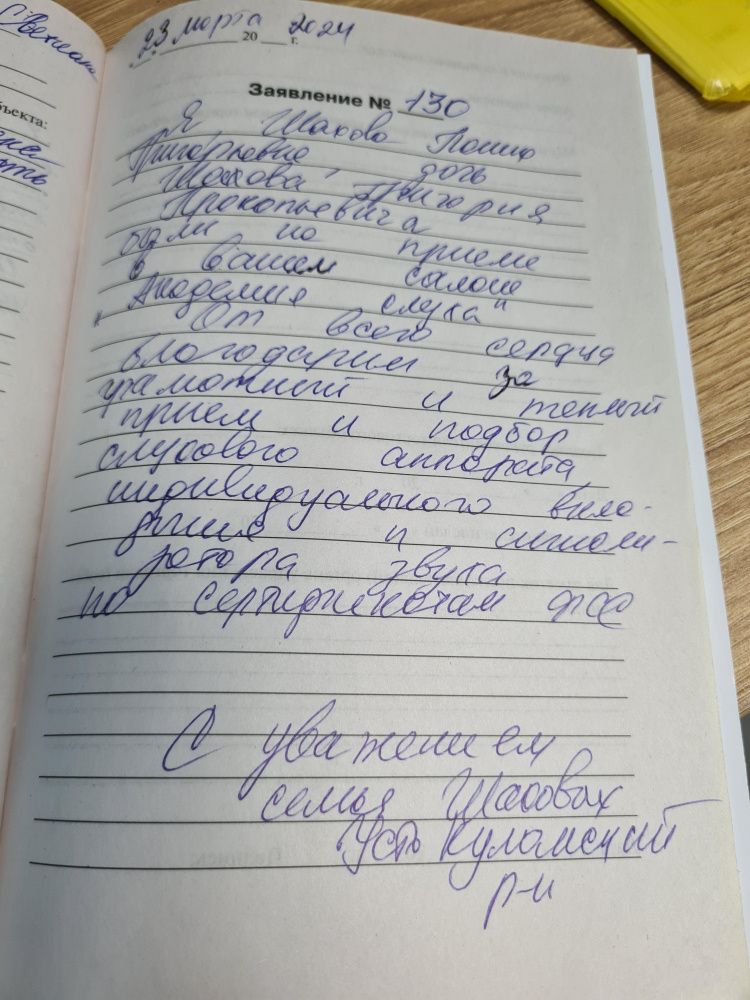 Светлана
бъекта:
23 марта 20 2024 г.
Заявление № 130
Я Шахова
Григорьевна дочь
Шахова Григория
Прокопьевича
были на приеме
в вашем салоне
"Академия слуха"
От всего сердца
благодарим за
грамотный и теплый
прием и подбор
слухового аппарата,
индивидуального вкла-
дыша и сигнали-
затора звука
по сертификатам ФСС
С уважением
семья Шаховых
Усть Куломский
р-н